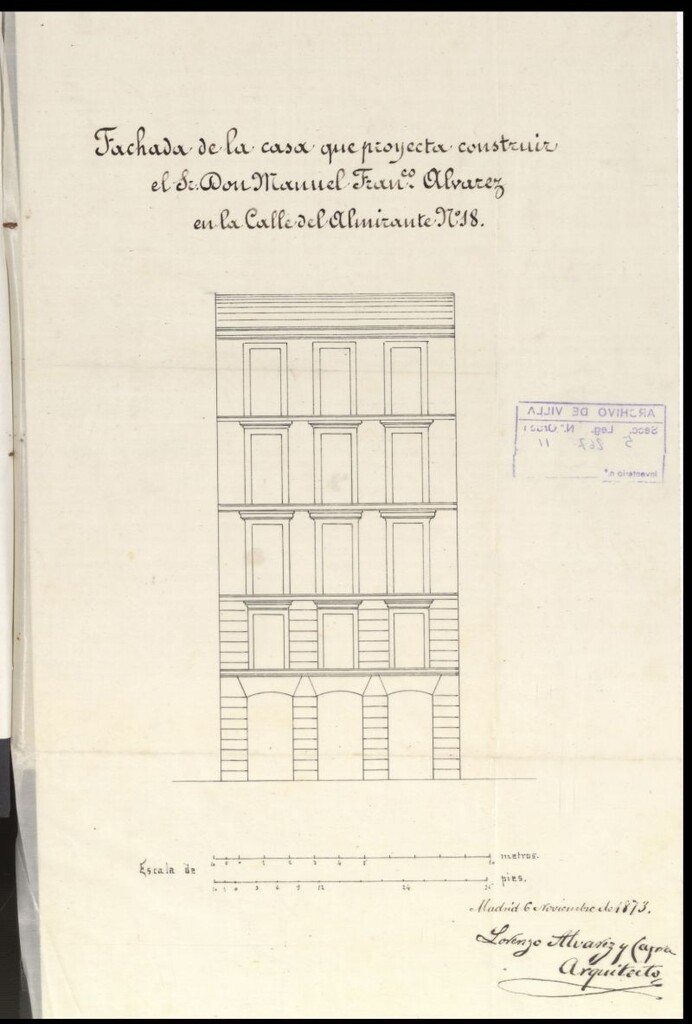 Fachada de la casa que proyecta construir
el Sr. Don Manuel Fran.co Alvarez
en la Calle del Almirante Nº 18.
ARCHIVO DE VILLA
Secc. Leg. N. Orden
5 267 11
Inventario n.º
Escala de
metros.
pies.
Madrid 6 Noviembre de 1873.
Lorenzo Alvarez y Capra
Arquitecto